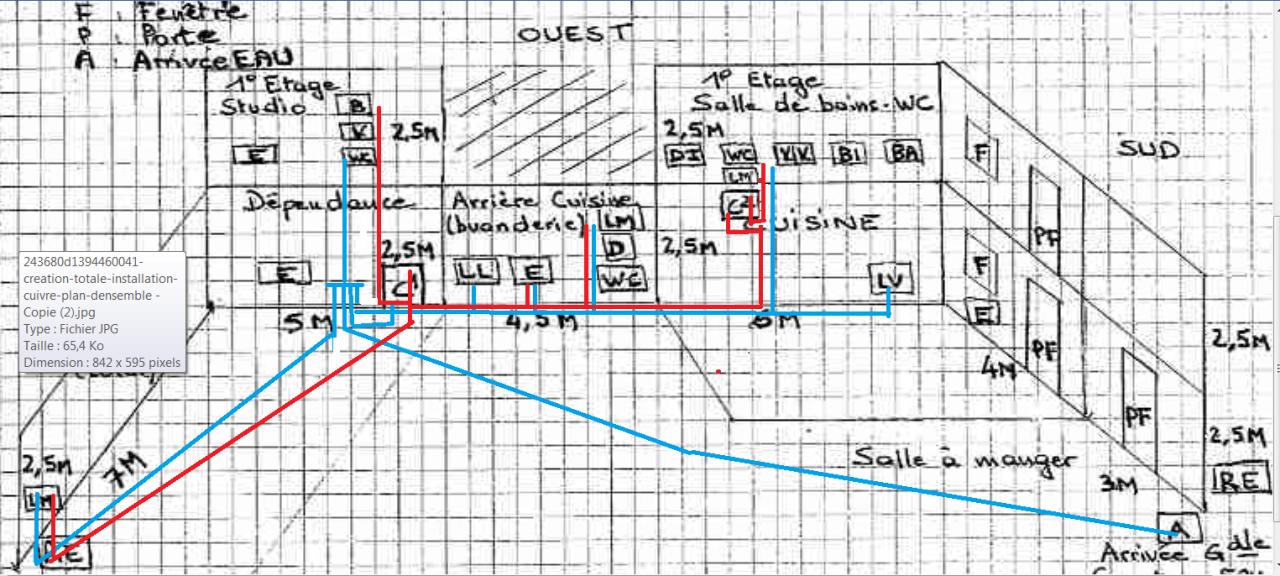 F : Fenêtre
P : Porte
A : Arrivée EAU
OUEST
1° Etage
Studio
B
V
WC
2,5M
E
1° Etage
Salle de bains-WC
2,5M
DI
WC
VV
BI
BA
LM
F
PF
SUD
Dépendance
2,5M
E
C1
Arrière Cuisine
(buanderie)
LM
D
WC
LL
E
C2
CUISINE
2,5M
LV
F
E
PF
5M
4,5M
6M
4M
2,5M
PF
2,5M
RE
3M
Salle à manger
A
Arrivée Gdle
2,5M
7M
LM
243680d1394460041-
creation-totale-installation-
cuivre-plan-densemble -
Copie (2).jpg
Type : Fichier JPG
Taille : 65,4 Ko
Dimension : 842 x 595 pixels